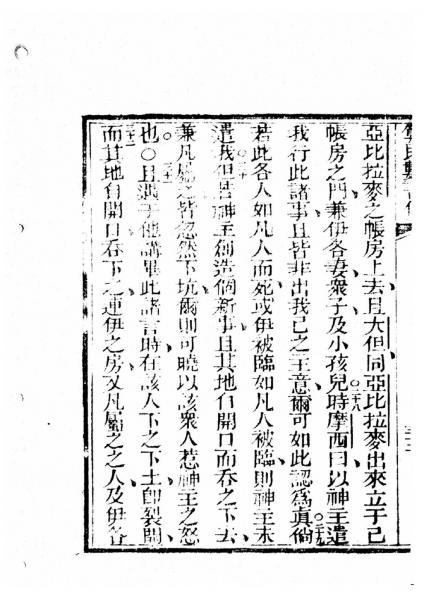 亞比拉麥之帳房上去且大但同亞比拉麥出來立于己
帳房之門兼伊各妻衆子及小孩兒時摩西曰以神主遣
我行此諸事且皆非出我己之主意爾可如此認爲眞倘
若此各人如凡人而死或伊被臨如凡人被臨則神主未
遣我但若神主創造個新事且其地自開口而吞之下去
兼凡屬之皆忽然下坑爾則可曉以該衆人惹神主之怒
也○且遇于他講畢此諸言時在該人下之下土卽裂開
而其地自開口吞下之連伊之房及凡屬之之人及伊各